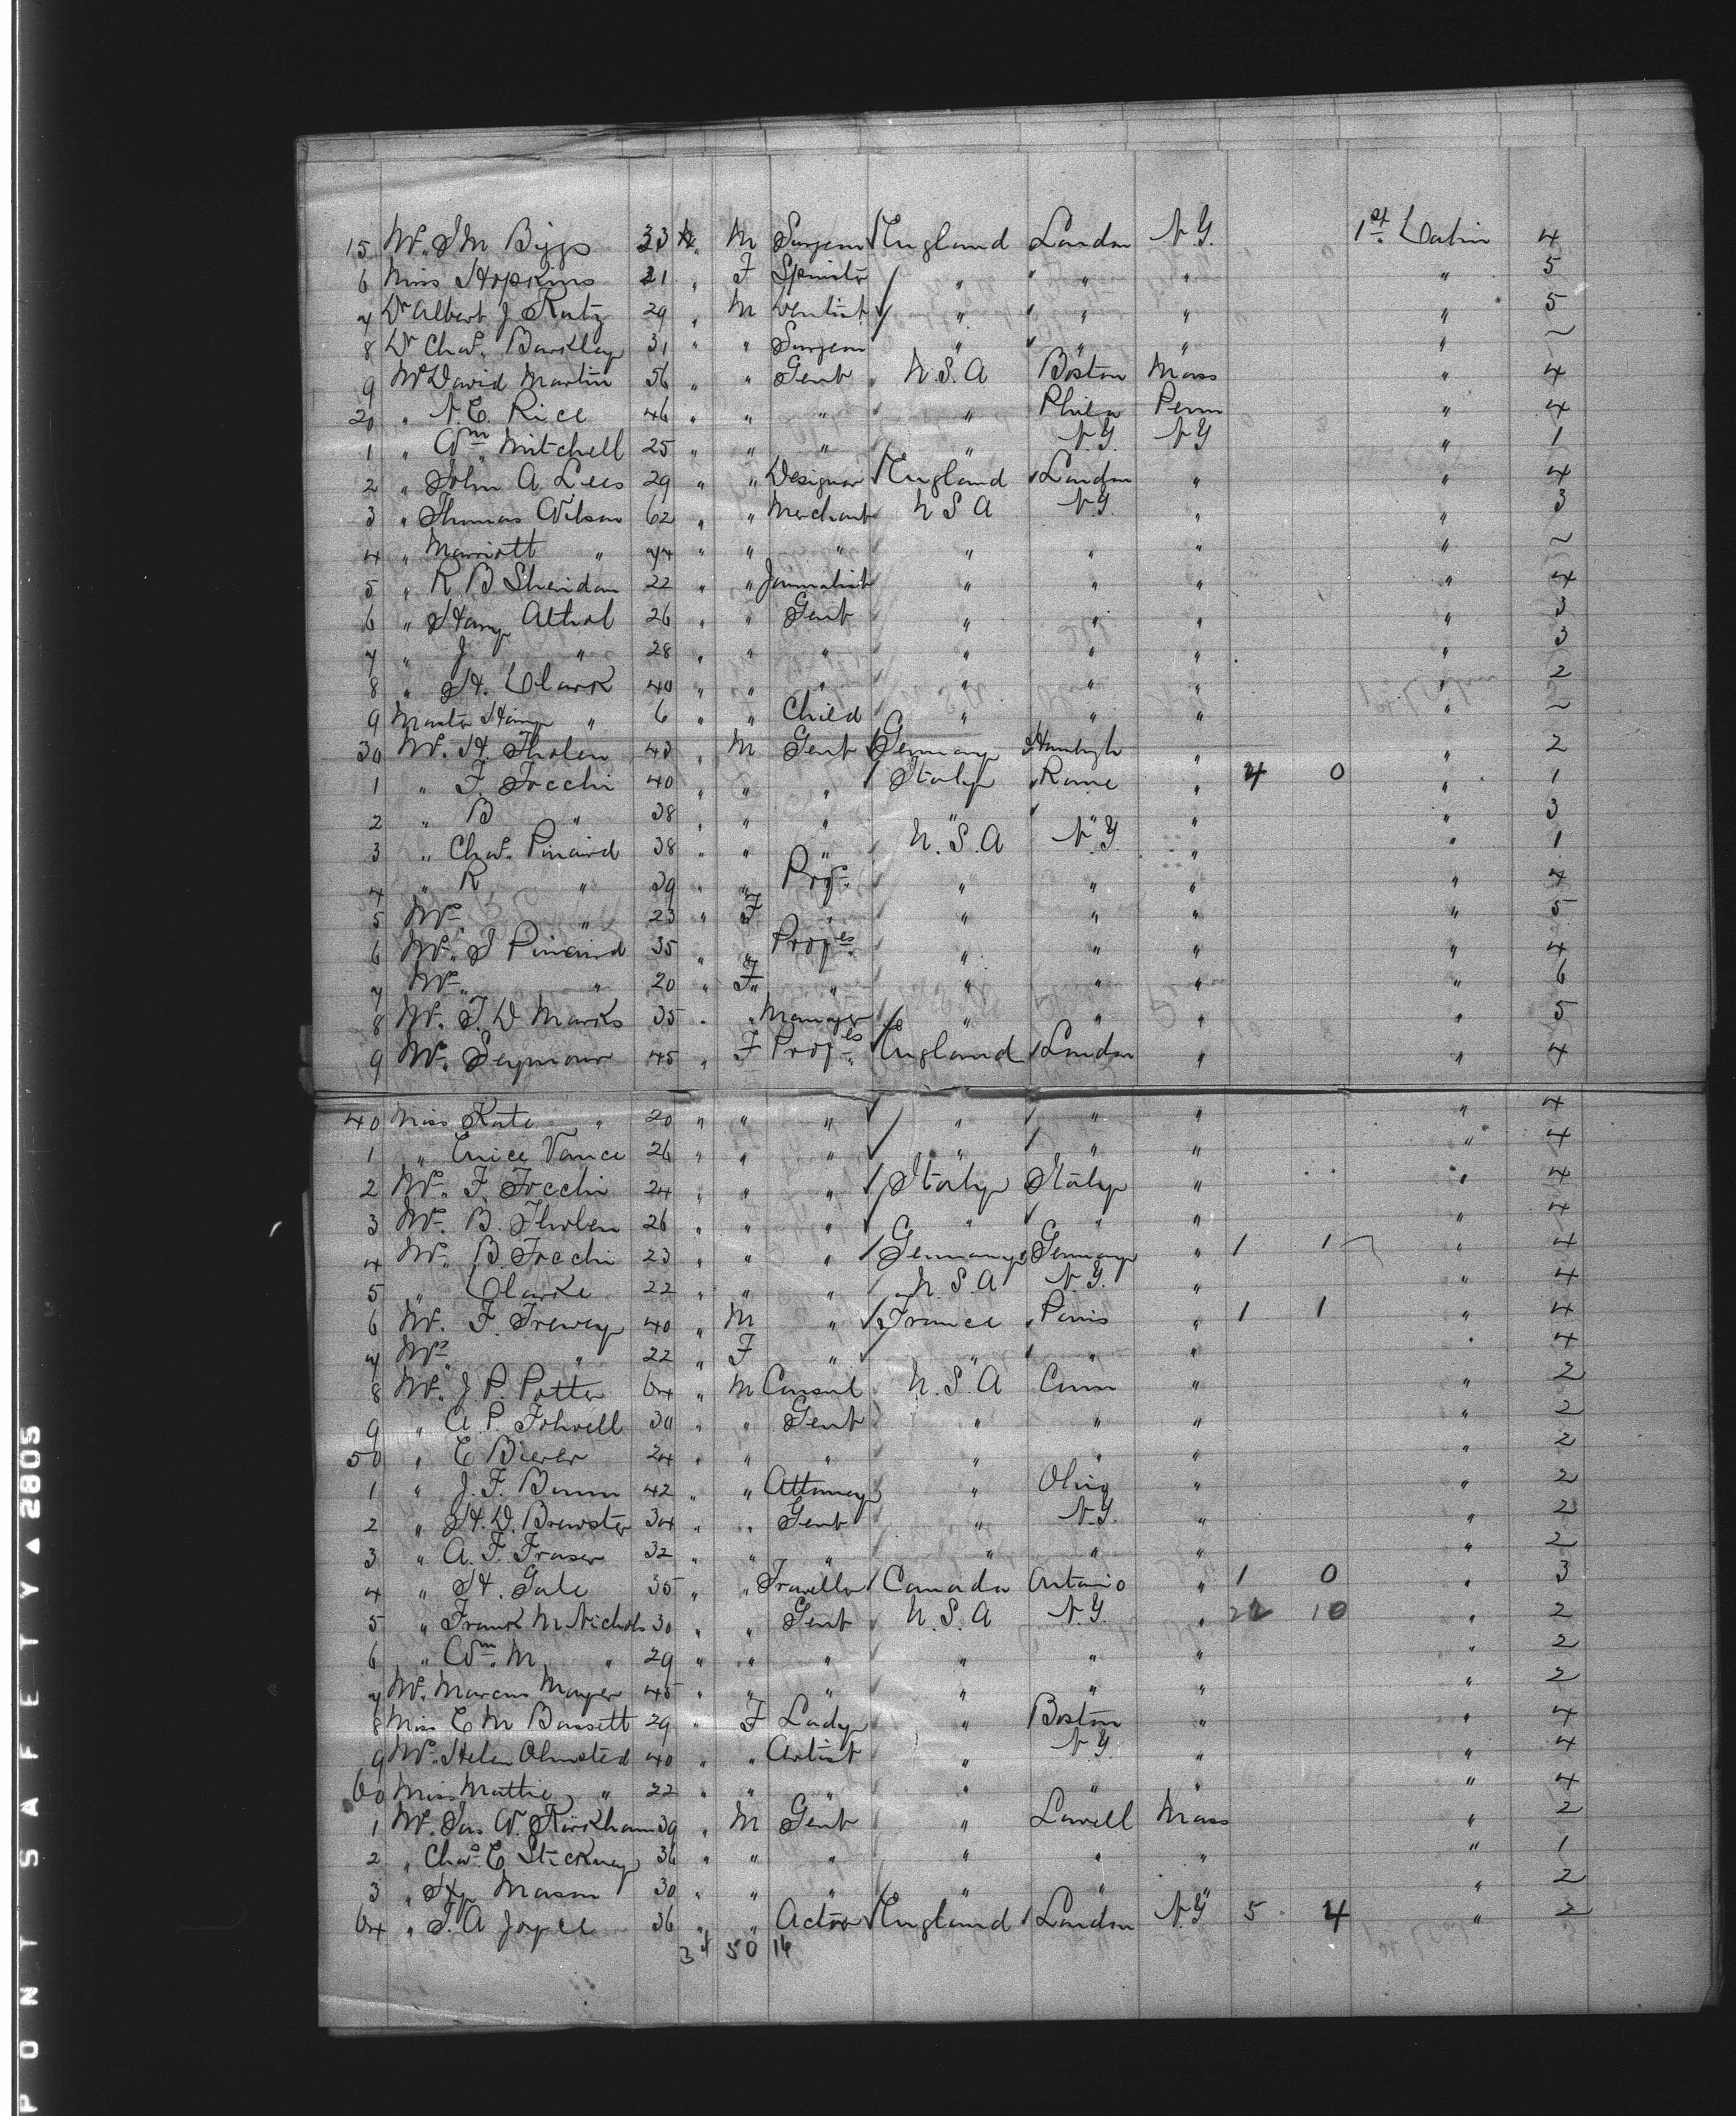 15 Mr. J M Biggs 33 " M Surgeon England London N.Y. 1st Cabin 4
6 Miss Hopkins 21 " F Spinster " " " " 5
7 Dr Albert J Katz 29 " M Dentist " " " " 5
8 Dr Chas. Barkley 31 " " Surgeon " " " " ~
9 Mr David Martin 56 " " Gent U.S.A Boston Mass " 4
20 " N.E. Rice 46 " " " " Phila Penn " 4
1 " Wm Mitchell 25 " " " " N.Y. N.Y " 1
2 " John A Lees 29 " " Designer England London " " 4
3 " Thomas Wilson 62 " " Merchant U S A N.Y. " " 3
4 " Marriott " 74 " " " " " " " ~
5 " R B Sheridan 22 " " Journalist " " " " 4
6 " Harry Athol 26 " " Gent " " " " 3
7 " J " 28 " " " " " " " 3
8 " H. Clark 40 " " " " " " " 2
9 Master Harry " 6 " " Child " " " " ~
30 Mr. H. Tholen 43 " M Gent Germany " " 2
1 " F. Tocchi 40 " " " Italy Rome " 4 0 " 1
2 " B " 38 " " " " " " " 3
3 " Chas. Pinaird 38 " " " U.S.A N.Y. " " 1
4 " R " 39 " " Prof. " " " " 4
5 Mrs " 23 " F " " " " " 5
6 Mr. J Pinaird 35 " " Profes. " " " " 4
7 Mrs " " 20 " F " " " " " 6
8 Mr. T. D Marks 35 " " Manager " " " " 5
9 Mrs. Seymour 45 " F Profes. England London " " 4
40 Miss Kate " 20 " " " " " " " 4
1 " Eunice Vance 26 " " " " " " " 4
2 Mrs. F. Tocchi 24 " " " Italy Italy " " 4
3 Mrs. B. Tholen 26 " " " " " " " 4
4 Mrs. B. Tocchi 23 " " " Germany Germany " 1 1 " 4
5 " Clarke 22 " " " U.S.A N.Y. " " 4
6 Mr. F. Trewey 40 " M " France Paris " 1 1 " 4
7 Mrs. " 22 " F " " " " " 4
8 Mr. J. P. Potter 64 " M Consul U.S.A Conn " " 2
9 " A. P. Folwell 30 " " Gent " " " " 2
50 " E Bierer 24 " " " " " " " 2
1 " J. F. Bunn 42 " " Attorney " Ohio " " 2
2 " H. D. Brewster 34 " " Gent " N.Y. " " 2
3 " A. F. Fraser 32 " " " " " " " 2
4 " H. Gale 35 " " Traveller Canada Ontario " 1 0 " 3
5 " Frank M Nichols 30 " " Gent U.S.A N.Y. " 22 10 " 2
6 " Wm. M " 29 " " " " " " " 2
7 Mr. Marcus Mayer 45 " " " " " " " 2
8 Miss E M Bassett 29 " F Lady " Boston " " 4
9 Mrs. Helen Olmsted 40 " " Artist " N.Y. " " 4
60 Miss Mattie " 22 " " " " " " " 4
1 Mr. Jas W. Kirkham 39 " M Gent " Lowell Mass " 2
2 " Chas. E Stickney 36 " " " " " " " 1
3 " Hy Mason 30 " " " " " " " 2
64 " T. A Joyce 36 " " Actor England London N.Y 5 4 " 2
34 50 14
PONT SAFETY ▲ 2805